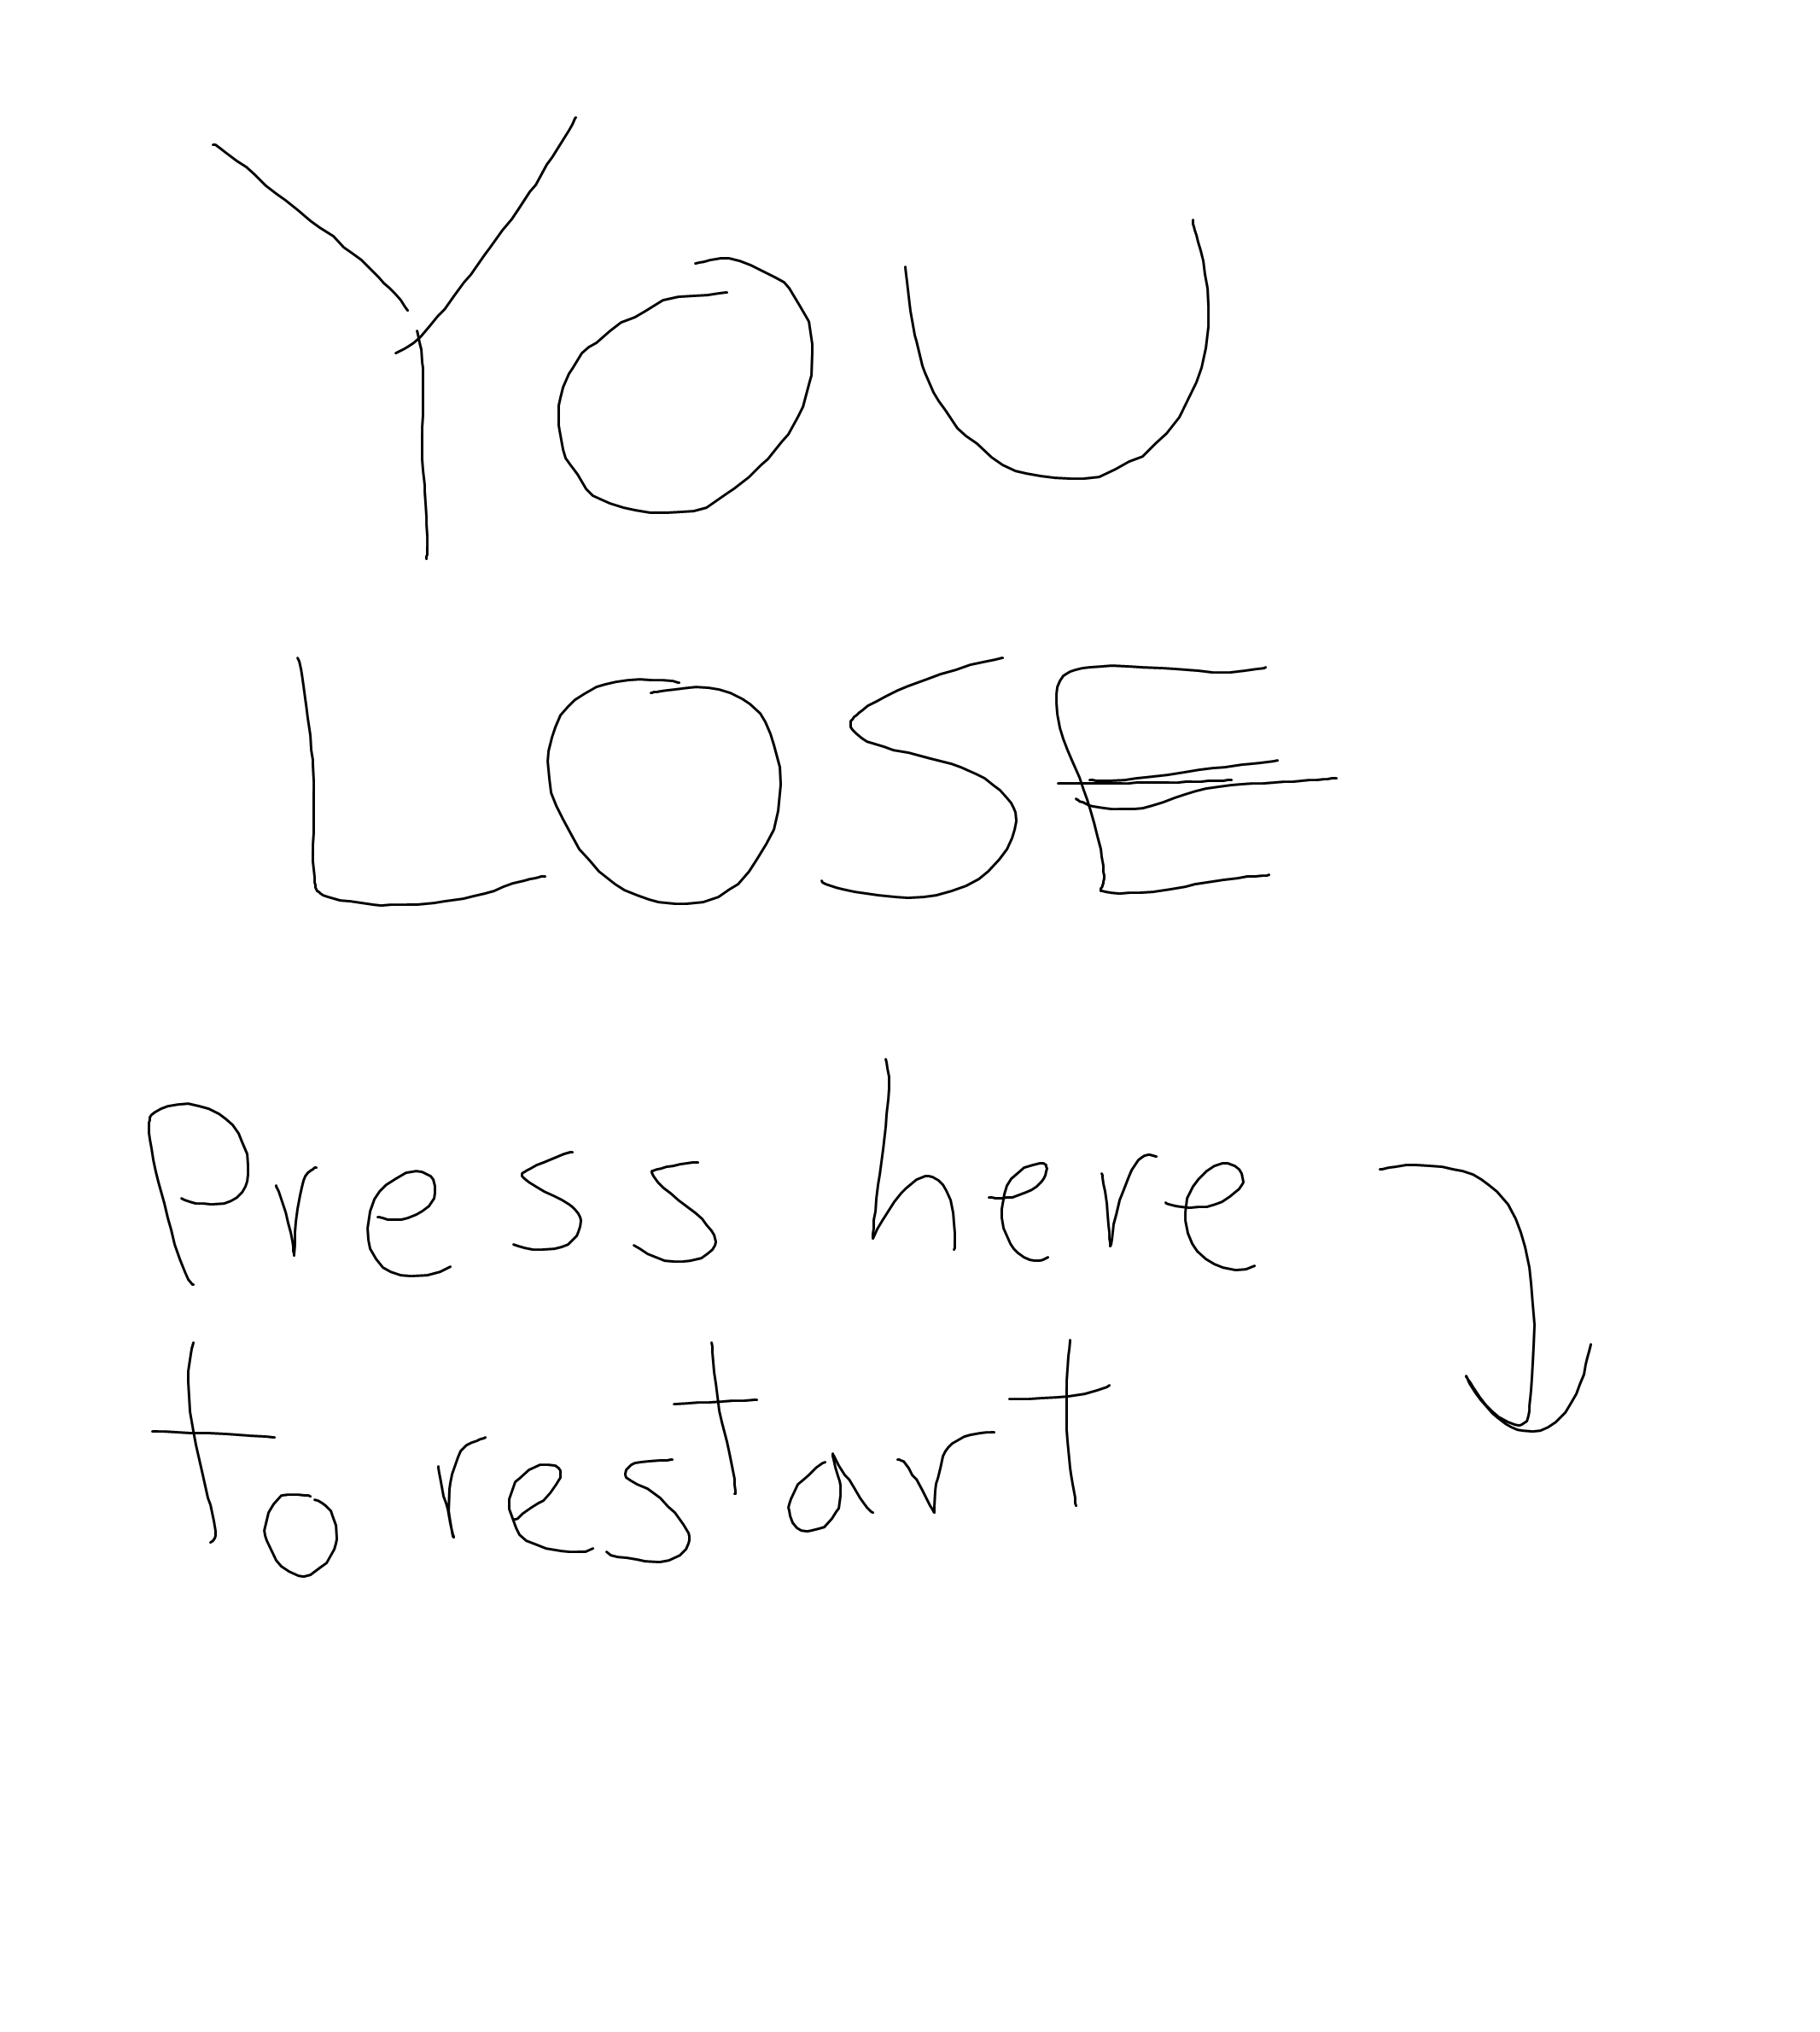 YOU
LOSE
Press here
to restart